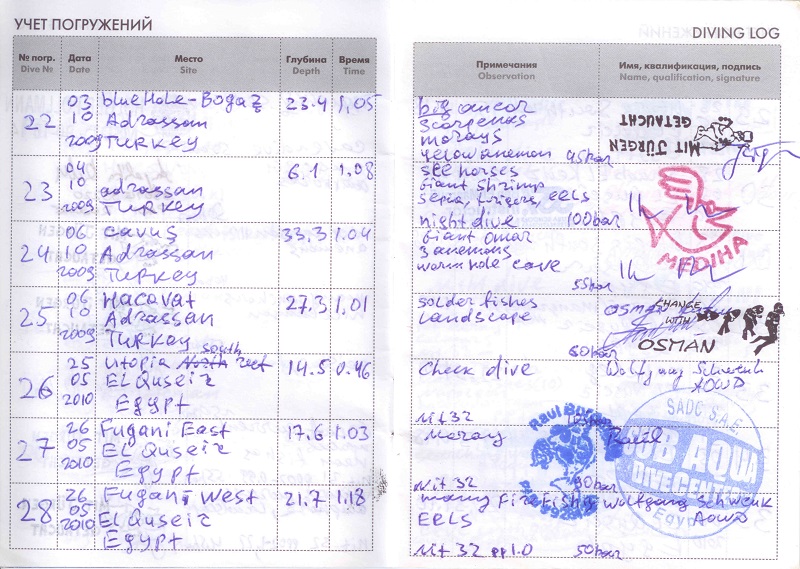 УЧЕТ ПОГРУЖЕНИЙ
DIVING LOG
№ погр. Дата Место Глубина Время
Dive № Date Site Depth Time
Примечания Имя, квалификация, подпись
Observation Name, qualification, signature
22 03 10 2009 blueHole-Bogaz 23.4 1,05
Adrassan
TURKEY
big ancor
scorpenas
morays
yelow anemon 95bar
MIT JÜRGEN
GETAUCHT
23 04 10 2009 adrassan 6.1 1.08
TURKEY
see horses
Giant Shrimp
Sepia, trigers, EELS
night dive 100bar
MEDIHA
24 06 10 2009 cavuş 33.3 1.04
Adrassan
TURKEY
Giant omar
3 anemons
worm hole cave
55bar
25 06 10 2009 Hacavat 27.3 1,01
Adrassan
TURKEY
solder fishes
Landscape
60bar
OSMAN
CHANGE
WITH
OSMAN
26 25 05 2010 Utopia south reef 14.5 0.46
EL Quseir
Egypt
Check dive
Nit32
Wolfgang Schwenk
AOWD
27 26 05 2010 Fugani East 17.6 1.03
EL Quseir
Egypt
Moray
Nit 32 90bar
SADC S.A.E.
SUB AQUA
DIVE CENTER
Egypt
28 26 05 2010 Fugani West 21.7 1.18
EL Quseir
Egypt
many Fire Fishes
EELS
Nit 32 pp1.0 50bar
Wolfgang Schwenk
AOWD